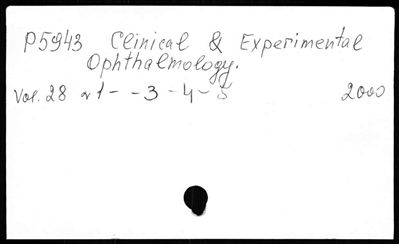 P5943 Clinical & Experimental
Ophthalmology.
Vol. 28 N 1 - - 3 - 4 - 5 2000